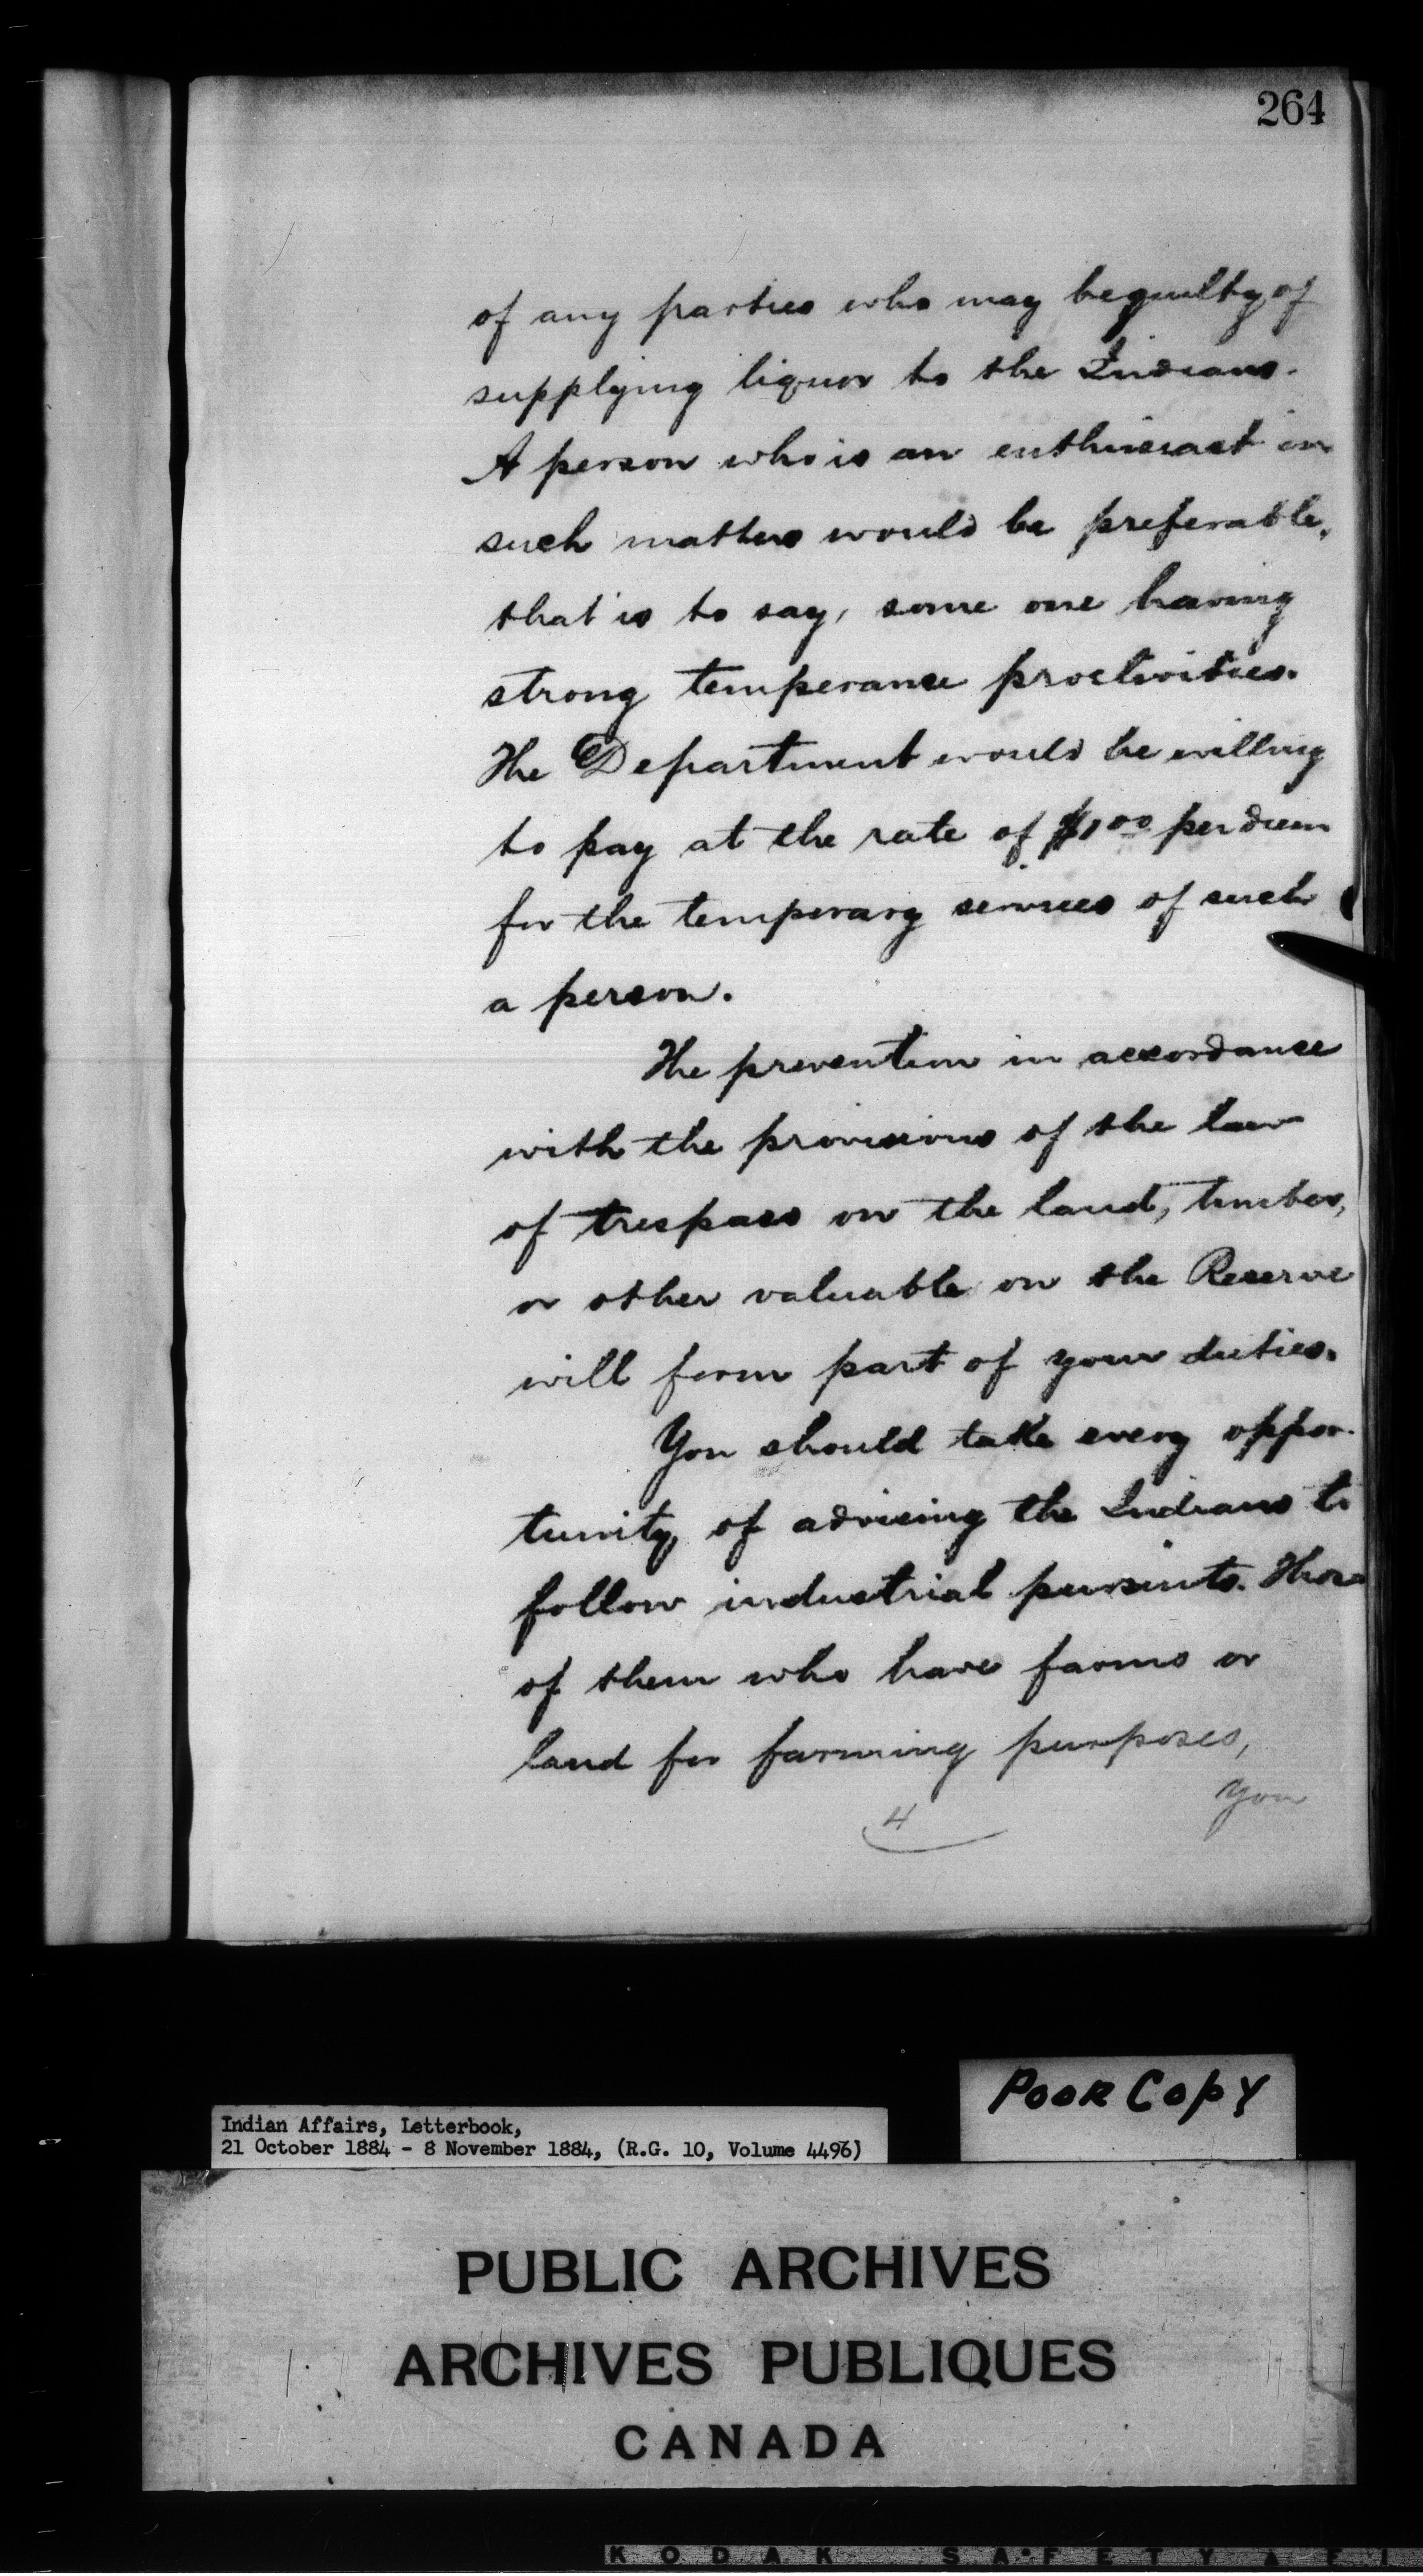 264
of any parties who may be guilty of
supplying liquor to the Indians.
A person who is an enthusiast in
such matters would be preferable,
that is to say, some one having
strong temperance proclivities.
The Department would be willing
to pay at the rate of $1.00 per diem
for the temporary services of such
a person.
The prevention in accordance
with the provisions of the law
of trespass on the land, timber,
or other valuable on the Reserve
will form part of your duties.
You should take every oppor-
tunity of advising the Indians to
follow industrial pursuits. Those
of them who have farms or
land for farming purposes,
you
4
Poor Copy
Indian Affairs, Letterbook,
21 October 1884 - 8 November 1884, (R.G. 10, Volume 4496)
PUBLIC ARCHIVES
ARCHIVES PUBLIQUES
CANADA
KODAK SAFETY